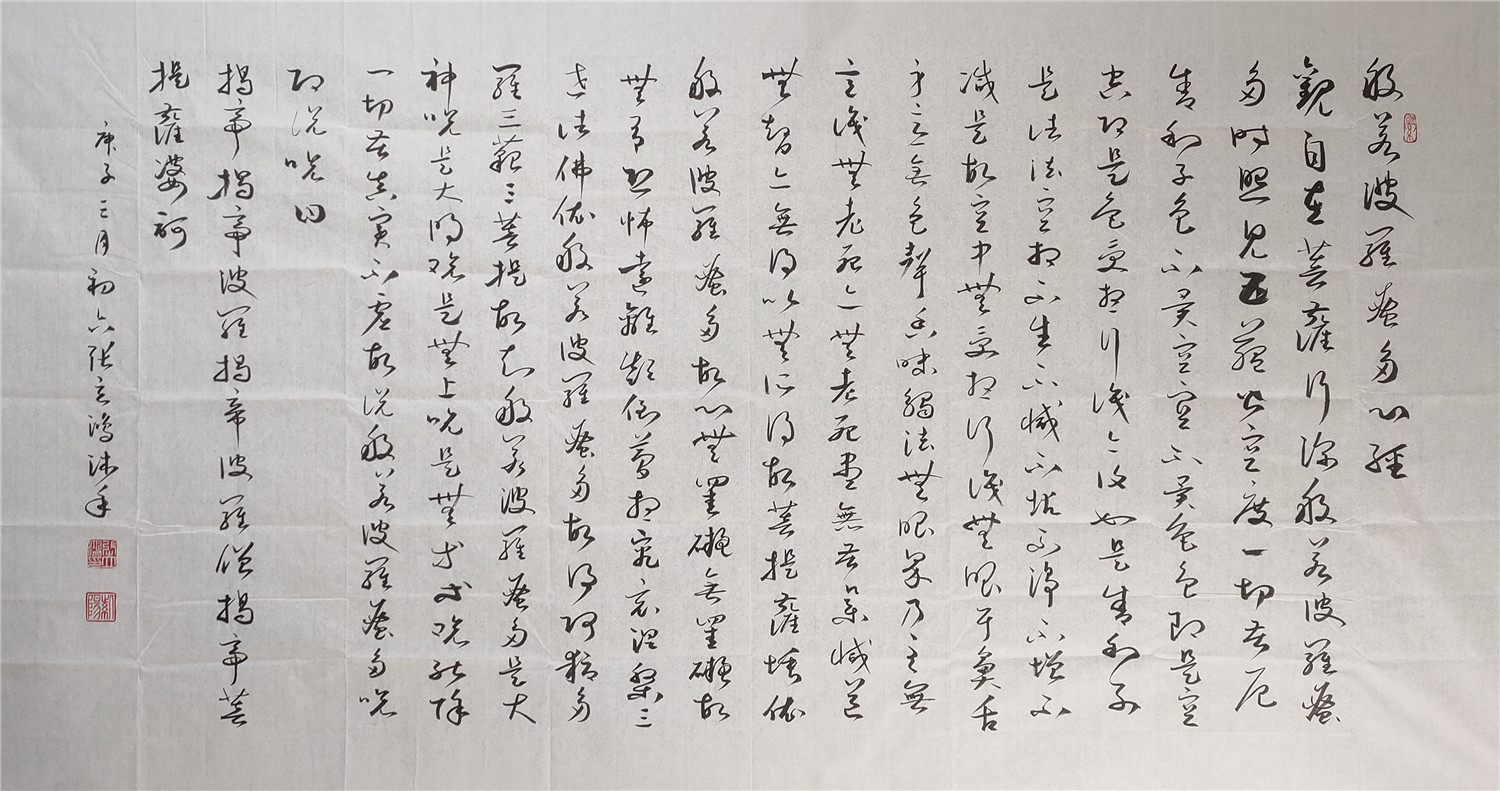 般若波羅蜜多心經
觀自在菩薩行深般若波羅蜜
多時照見五蘊皆空度一切苦厄
舍利子色不異空空不異色色即是空
空即是色受想行識亦復如是舍利子
是諸法空相不生不滅不垢不淨不增不
減是故空中無受想行識無眼耳鼻舌
身意無色聲香味觸法無眼界乃至無
意識無老死亦無老死盡無苦集滅道
無智亦無得以無所得故菩提薩埵依
般若波羅蜜多故心無罣礙無罣礙故
無有恐怖遠離顛倒夢想究竟涅槃三
世諸佛依般若波羅蜜多故得阿耨多
羅三藐三菩提故知般若波羅蜜多是大
神咒是大明咒是無上咒是無等等咒能除
一切苦真實不虛故說般若波羅蜜多咒
即說咒曰
揭帝揭帝波羅揭帝波羅僧揭帝菩
提薩婆訶
庚子三月初六張立鴻沐手